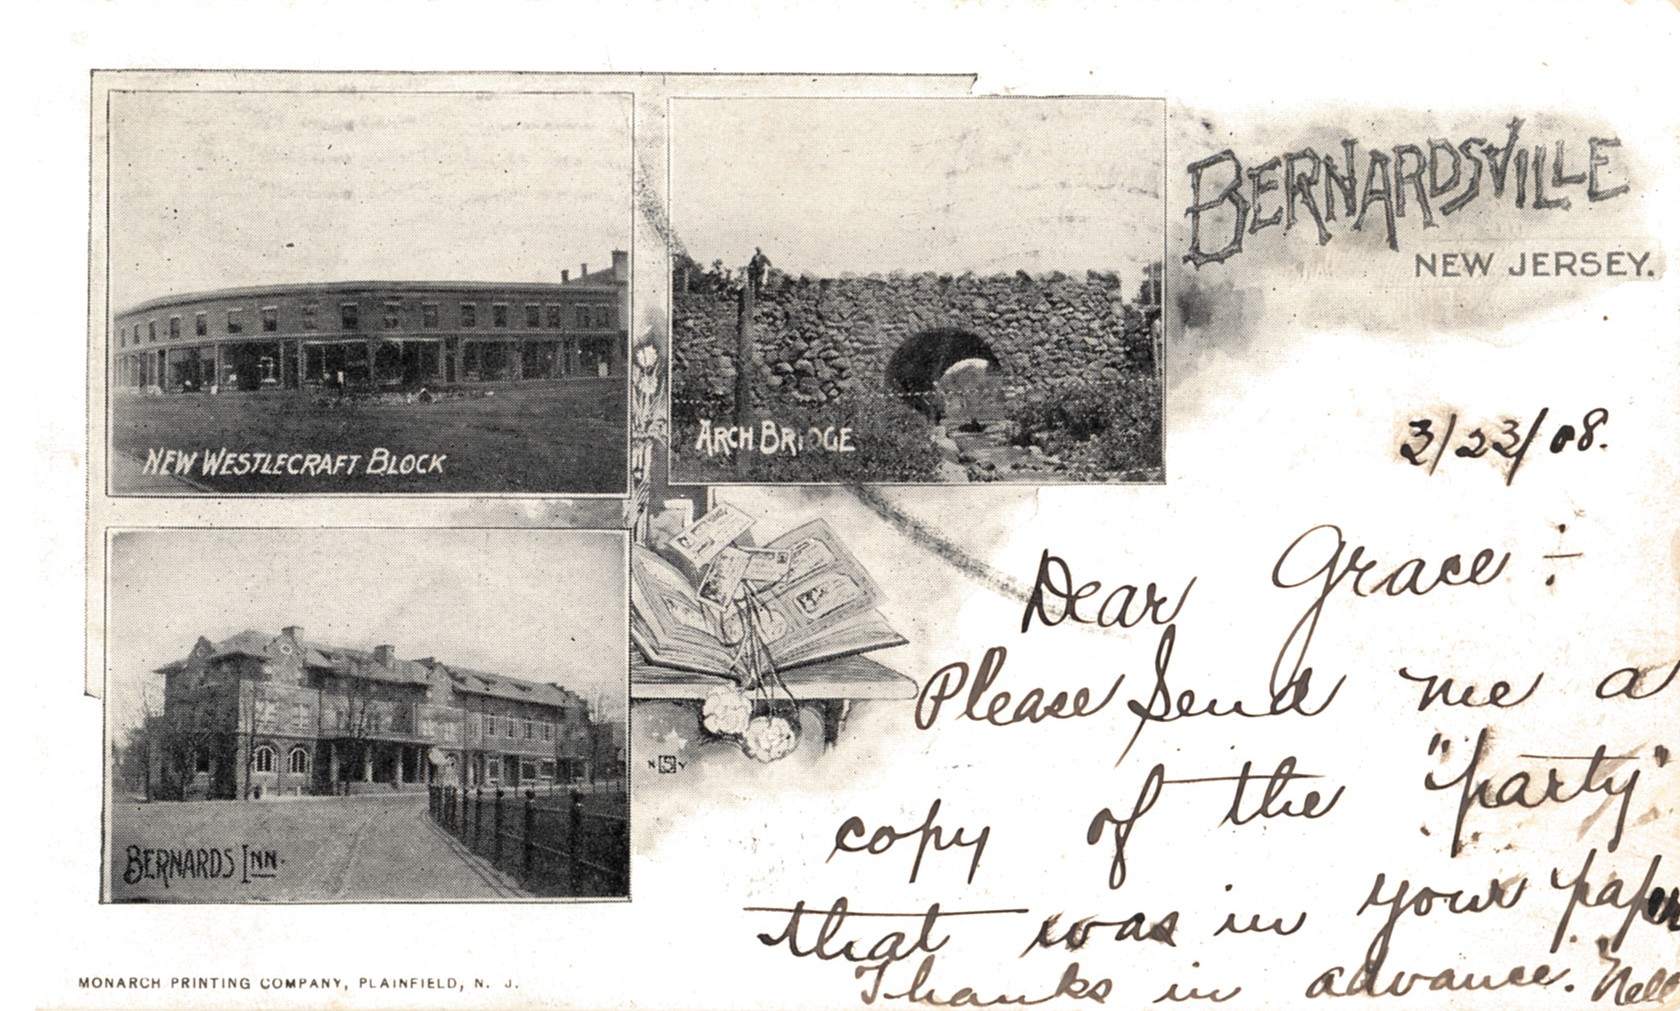 BERNARDSVILLE
NEW JERSEY.
NEW WESTLECRAFT BLOCK
ARCH BRIDGE
BERNARDS INN.
N Y
3/23/08.
Dear Grace :
Please send me a
copy of the "party"
that was in your paper
Thanks in advance. Nell
MONARCH PRINTING COMPANY, PLAINFIELD, N. J.